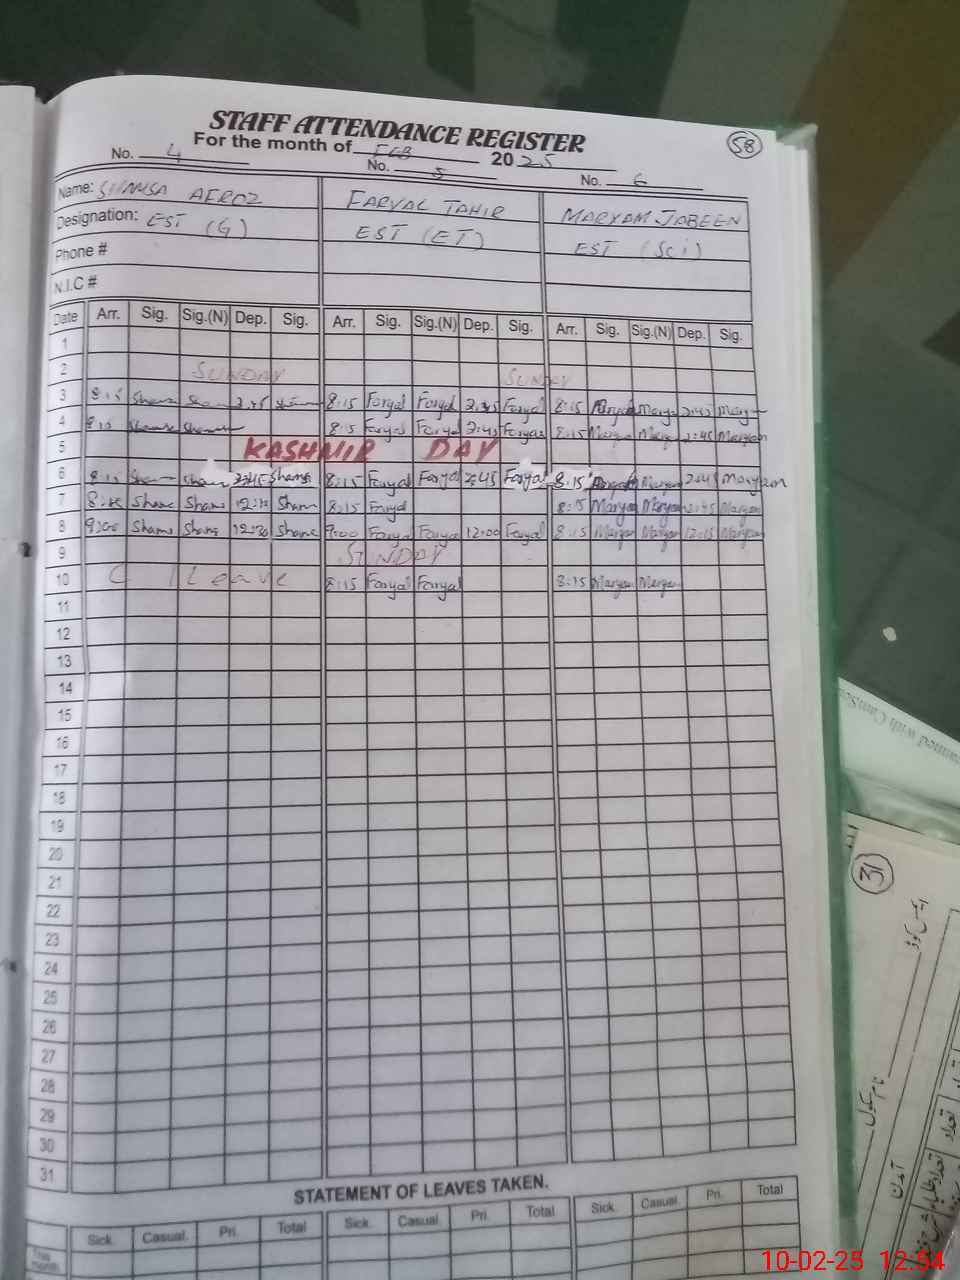 STAFF ATTENDANCE REGISTER
58
For the month of FEB 2025
No. 4 No. 5 No. 6
Name: SHAMSA AFROZ FARYAL TAHIR MARYAM JABEEN
Designation: EST (G) EST (ET) EST (Sci)
Phone #
N.I.C #
Date Arr. Sig. Sig.(N) Dep. Sig. Arr. Sig. Sig.(N) Dep. Sig. Arr. Sig. Sig.(N) Dep. Sig.
1
2 SUNDAY SUNDAY
3 8:15 Shams Sham 2:45 Shams 8:15 Faryal Faryal 2:45 Faryal 8:15 Maryam Maryam 2:45 Maryam
4 8:15 Shamsa Shamsa 8:15 Faryal Faryal 2:45 Faryal 8:15 Maryam Maryam 2:45 Maryam
5 KASHMIR DAY
6 8:15 Sham Sham 2:45 Shams 8:15 Faryal Faryal 2:45 Faryal 8:15 Maryam 2:45 Maryam
7 Shams Shams Sham 8:15 Faryal 8:15 Maryam Maryam 2:45 Maryam
8 9:00 Shams Shams 12:30 Shams 9:00 Faryal Faryal 12:00 Faryal 8:15 Maryam Maryam 12:15 Maryam
9 SUNDAY
10 C / Leave 8:15 Faryal Faryal 8:15 Maryam Maryam
11
12
13
14
15
16
17
18
19
20
21
22
23
24
25
26
27
28
29
30
31
STATEMENT OF LEAVES TAKEN.
Sick. Casual. Pri. Total Sick. Casual. Pri. Total Sick. Casual. Pri. Total
This month
31
10-02-25 12:54